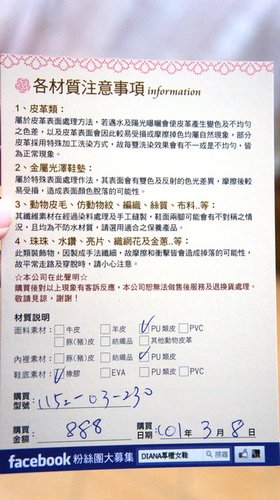 各材質注意事項 information
1、皮革類：
屬於皮革表面處理方法，若遇水及陽光曝曬會使皮革產生變色及不均勻
之色差，以及皮革表面會因此較易受損或摩擦掉色均屬自然現象，部分
皮革採用特殊加工洗染方式，故每雙洗染效果會有不一或是不均勻，皆
為正常現象。
2、金屬光澤鞋墊：
屬於特殊表面處理作法，其表面會有雙色及反射的色光差異，摩擦後較
易受損，造成表面顏色脫落的可能性。
3、動物皮毛、仿動物紋、編織、絲質、布料..等：
其纖維素材在經過染料處理及手工縫製，鞋面兩腳可能會有不對稱之情
況，且均為不防水材質，請選用適合之保養產品。
4、珠珠、水鑽、亮片、織銅花及金蔥..等：
此類裝飾物，因製成手法纖細，故摩擦和衝擊皆會造成掉落的可能性，
故平常走路及穿脫時，請小心注意。
☆本公司在此聲明☆
購買後對以上現象有客訴反應，本公司恕無法做售後服務及退換貨處理。
敬請見諒，謝謝！
材質說明
面料素材： 牛皮 羊皮 PU類皮 PVC
豬(豬)皮 紡織品 其他動物皮革
內裡素材： 豚(豬)皮 紡織品 PU類皮
鞋底素材： 橡膠 EVA PU類皮 PVC
購買型號： 1152-03-230
購買金額： 888 購買日期： 101年 3月 8日
facebook 粉絲團大募集 DIANA專櫃女鞋 搜尋 讚